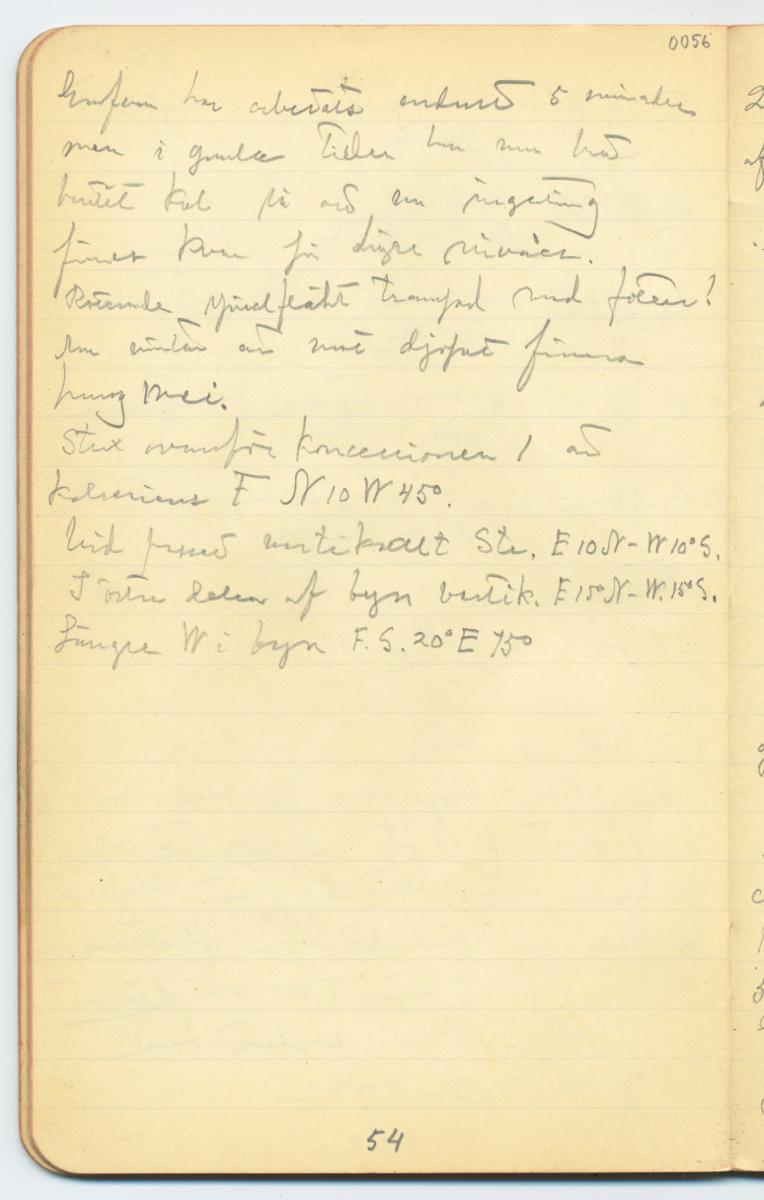 0056
Grufvan har arbetats endast 5 månader
men i gamla Tider har man
brutit kol så att nu ingenting
finnes kvar på högre nivåer.
trampad med foten!
man väntar att mot djupet finna
hung mei.
Strax ovanför koncessionen 1 
kolseriens F N 10 W 45°.
Vid passet vertikalt Str. E 10 N - W 10° S.
I östra delen af byn vertik. E 15° N - W. 15° S.
Längre W i byn F. S. 20° E 75°
54